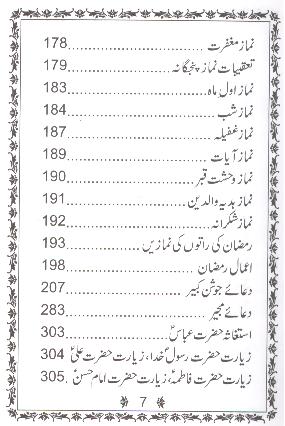 نماز مغفرت ........................ 178
تعقیبات نماز پنجگانہ ................ 179
نماز اول ماہ ........................ 183
نماز شب ........................ 184
نماز غفیلہ ........................ 187
نماز آیات ........................ 189
نماز وحشت قبر ..................... 190
نماز ہدیہ والدین ..................... 191
نماز شکرانہ ........................ 192
رمضان کی راتوں کی نمازیں ........... 193
اعمال رمضان ..................... 198
دعائے جوشن کبیر .................. 207
دعائے مجیر ........................ 283
استغاثہ حضرت عباسؑ ............... 303
زیارت حضرت رسولؐ خدا، زیارت حضرت علیؑ 304
زیارت حضرت فاطمہؑ، زیارت حضرت امام حسنؑ .305
7